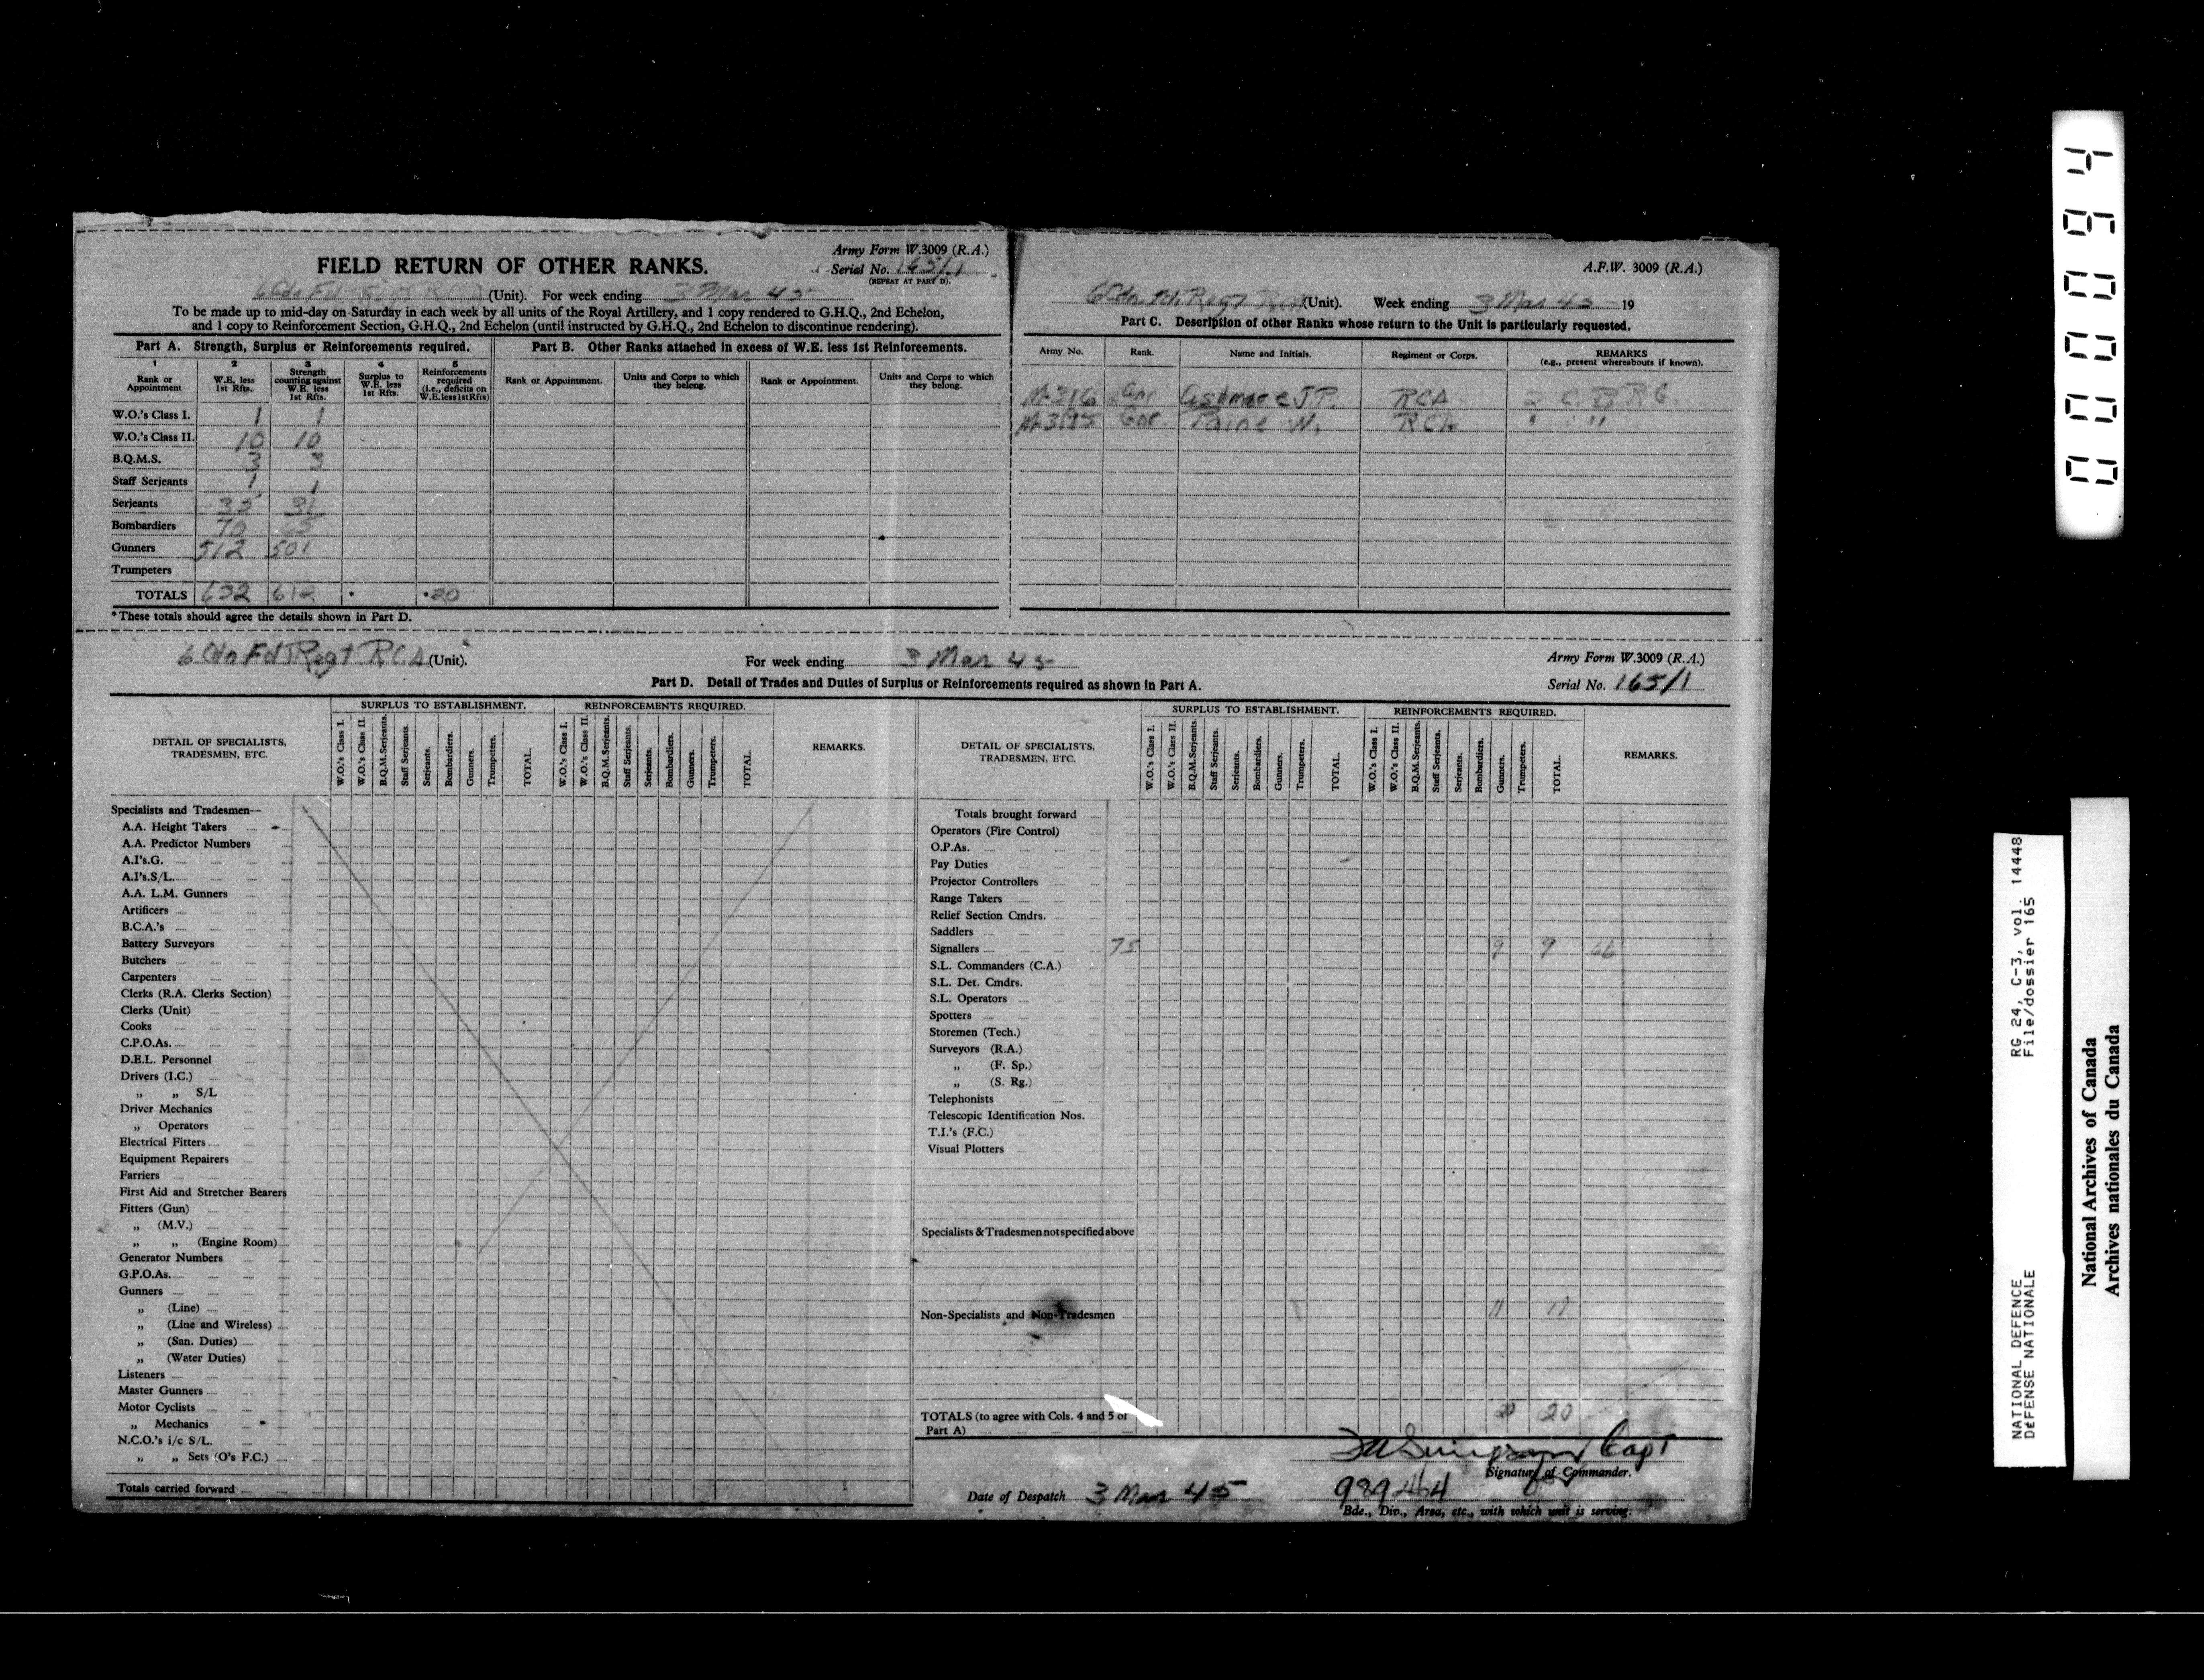 Army Form W.3009 (R.A.)
FIELD RETURN OF OTHER RANKS.
Serial No. 165/1
(REPEAT AT PART D).
6 Cdn Fd Regt RCA (Unit). For week ending 3 Mar 45
To be made up to mid-day on Saturday in each week by all units of the Royal Artillery, and 1 copy rendered to G.H.Q., 2nd Echelon,
and 1 copy to Reinforcement Section, G.H.Q., 2nd Echelon (until instructed by G.H.Q., 2nd Echelon to discontinue rendering).
Part A. Strength, Surplus or Reinforcements required.
1 2 3 4 5
Rank or Appointment
W.E. less 1st Rfts.
Strength counting against W.E. less 1st Rfts.
Surplus to W.E. less 1st Rfts.
Reinforcements required (i.e., deficits on W.E. less 1st Rfts)
W.O.'s Class I. 1 1
W.O.'s Class II. 10 10
B.Q.M.S. 3 3
Staff Serjeants 1 1
Serjeants 35 31
Bombardiers 70 65
Gunners 512 501
Trumpeters
TOTALS 632 612 • •20
* These totals should agree the details shown in Part D.
Part B. Other Ranks attached in excess of W.E. less 1st Reinforcements.
Rank or Appointment.
Units and Corps to which they belong.
Rank or Appointment.
Units and Corps to which they belong.
A.F.W. 3009 (R.A.)
6 Cdn Fd Regt RCA (Unit). Week ending 3 Mar 45 19
Part C. Description of other Ranks whose return to the Unit is particularly requested.
Army No. Rank. Name and Initials. Regiment or Corps. REMARKS
(e.g., present whereabouts if known).
Gnr J.P. RCA 2 C.B.R.G.
Gnr. Paine W. RCA " "
6 Cdn Fd Regt RCA (Unit). For week ending 3 Mar 45
Army Form W.3009 (R.A.)
Part D. Detail of Trades and Duties of Surplus or Reinforcements required as shown in Part A.
Serial No. 165/1
DETAIL OF SPECIALISTS,
TRADESMEN, ETC.
SURPLUS TO ESTABLISHMENT.
W.O.'s Class I. W.O.'s Class II. B.Q.M.Serjeants. Staff Serjeants. Serjeants. Bombardiers. Gunners. Trumpeters. TOTAL.
REINFORCEMENTS REQUIRED.
W.O.'s Class I. W.O.'s Class II. B.Q.M.Serjeants. Staff Serjeants. Serjeants. Bombardiers. Gunners. Trumpeters. TOTAL.
REMARKS.
Specialists and Tradesmen—
A.A. Height Takers
A.A. Predictor Numbers
A.I's.G.
A.I's.S/L.
A.A. L.M. Gunners
Artificers
B.C.A.'s
Battery Surveyors
Butchers
Carpenters
Clerks (R.A. Clerks Section)
Clerks (Unit)
Cooks
C.P.O.As.
D.E.L. Personnel
Drivers (I.C.)
„ „ S/L
Driver Mechanics
„ Operators
Electrical Fitters
Equipment Repairers
Farriers
First Aid and Stretcher Bearers
Fitters (Gun)
„ (M.V.)
„ „ (Engine Room)
Generator Numbers
G.P.O.As.
Gunners
„ (Line)
„ (Line and Wireless)
„ (San. Duties)
„ (Water Duties)
Listeners
Master Gunners
Motor Cyclists
„ Mechanics
N.C.O.'s i/c S/L.
„ „ Sets (O's F.C.)
Totals carried forward
DETAIL OF SPECIALISTS,
TRADESMEN, ETC.
SURPLUS TO ESTABLISHMENT.
W.O.'s Class I. W.O.'s Class II. B.Q.M.Serjeants. Staff Serjeants. Serjeants. Bombardiers. Gunners. Trumpeters. TOTAL.
REINFORCEMENTS REQUIRED.
W.O.'s Class I. W.O.'s Class II. B.Q.M.Serjeants. Staff Serjeants. Serjeants. Bombardiers. Gunners. Trumpeters. TOTAL.
REMARKS.
Totals brought forward
Operators (Fire Control)
O.P.As.
Pay Duties
Projector Controllers
Range Takers
Relief Section Cmdrs.
Saddlers
Signallers 75 9 9 66
S.L. Commanders (C.A.)
S.L. Det. Cmdrs.
S.L. Operators
Spotters
Storemen (Tech.)
Surveyors (R.A.)
„ (F. Sp.)
„ (S. Rg.)
Telephonists
Telescopic Identification Nos.
T.I.'s (F.C.)
Visual Plotters
Specialists & Tradesmen not specified above
Non-Specialists and Non-Tradesmen 11 11
TOTALS (to agree with Cols. 4 and 5 of 20 20
Part A)
Simpson Capt
Signature of Commander.
Date of Despatch 3 Mar 45 989464
Bde., Div., Area, etc., with which unit is serving.
000094
RG 24, C-3, vol. 14448
File/dossier 165
NATIONAL DEFENCE
DÉFENSE NATIONALE
National Archives of Canada
Archives nationales du Canada